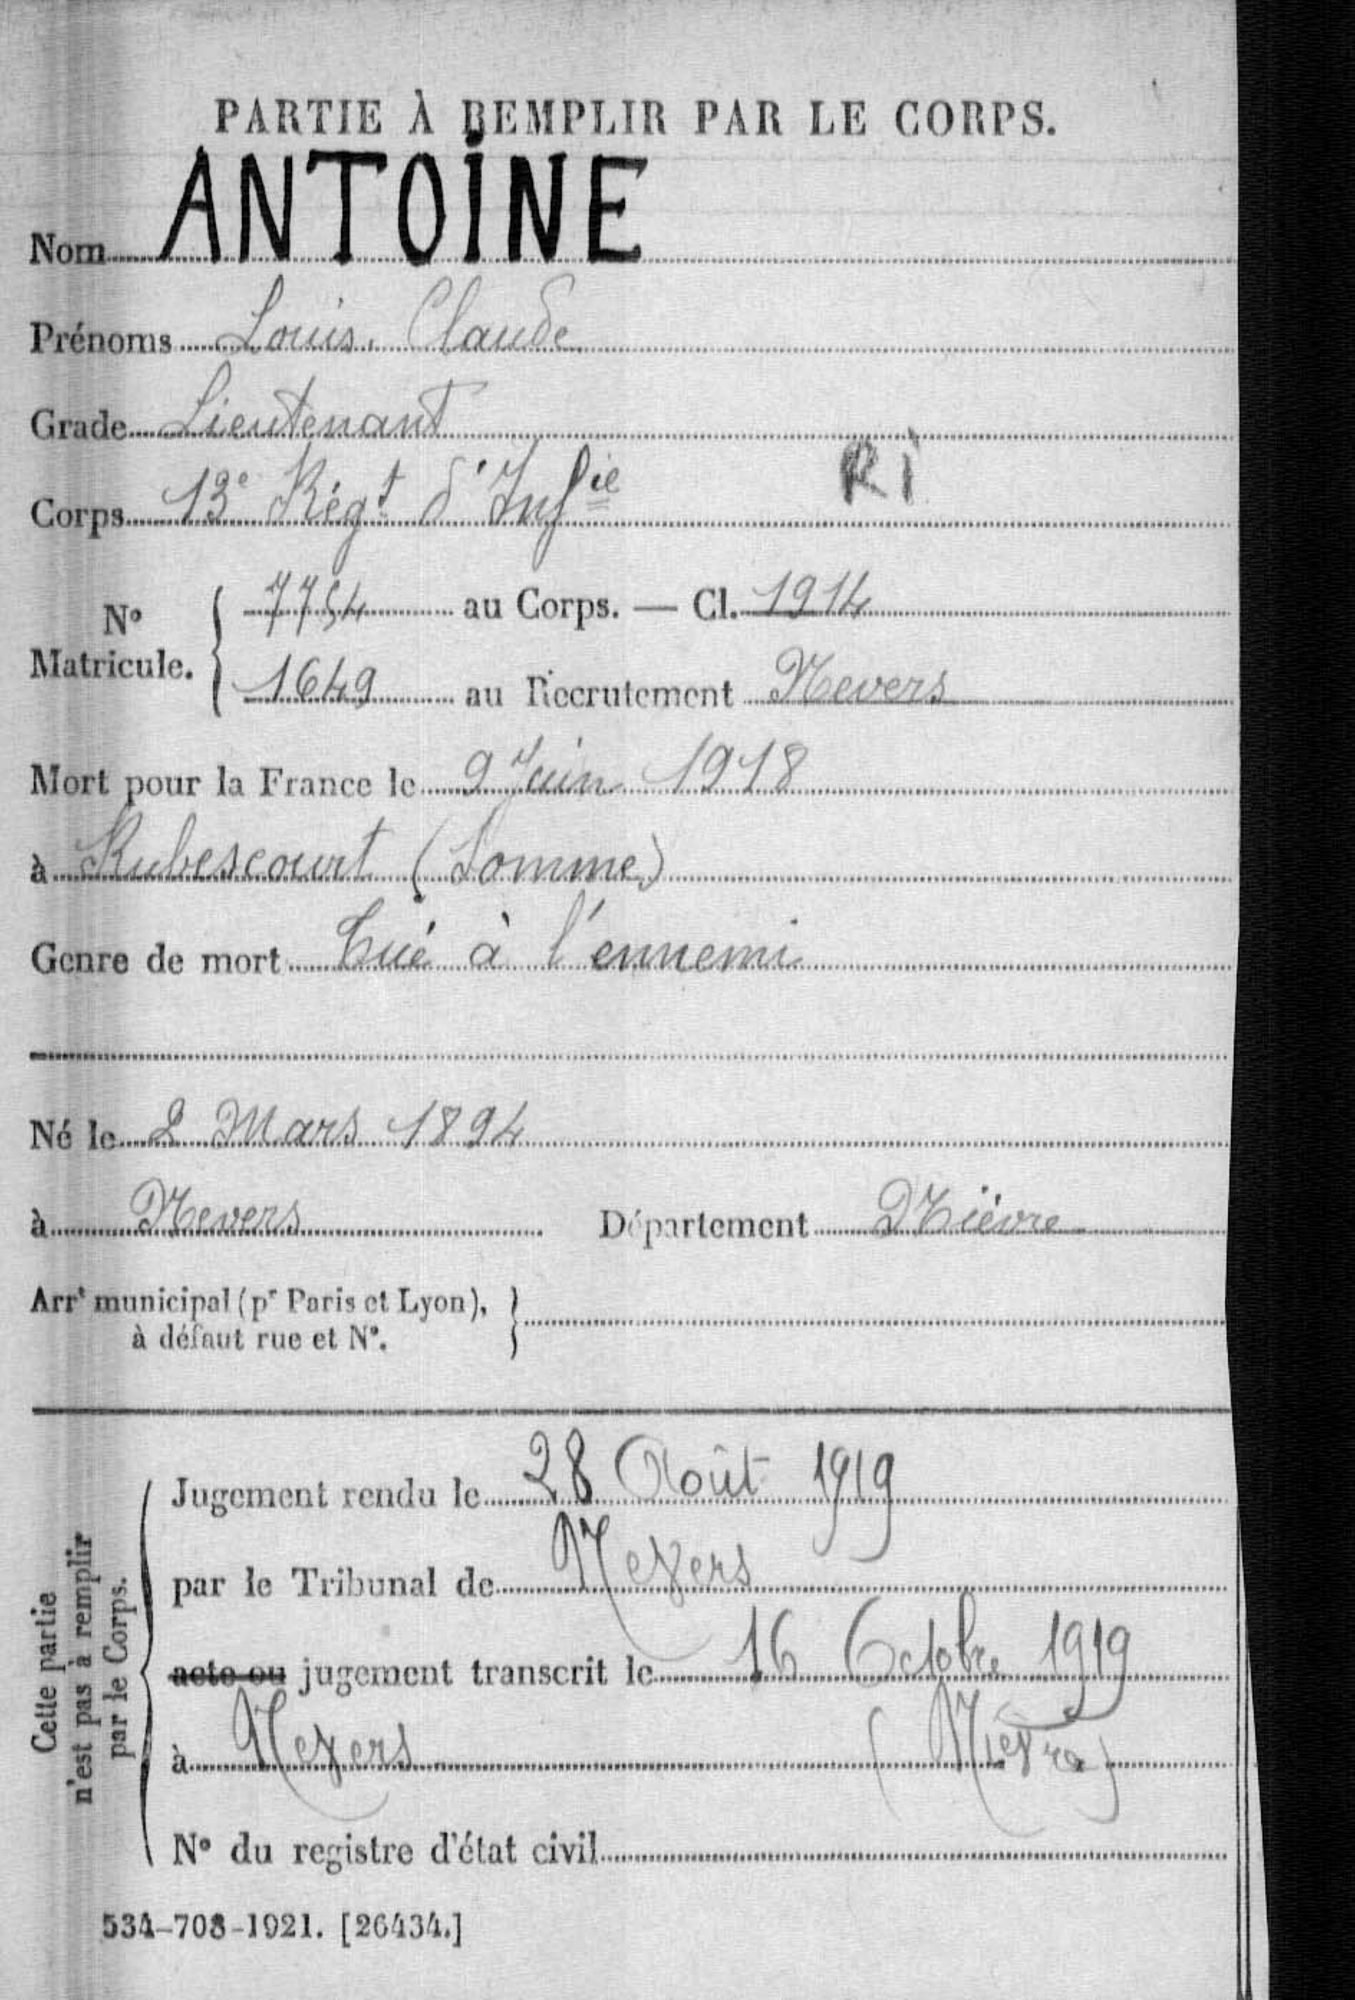 PARTIE À REMPLIR PAR LE CORPS.
Nom ANTOINE
Prénoms Louis, Claude
Grade Lieutenant
Corps 13e Régt d'Infie RI
No Matricule. { 7754 au Corps. — Cl. 1914
1649 au Recrutement Nevers
Mort pour la France le 9 Juin 1918
à Rubescourt (Somme)
Genre de mort Tué à l'ennemi
Né le 2 Mars 1894
à Nevers Département Nièvre
Arrt municipal (pr Paris et Lyon), }
à défaut rue et No.
Cette partie
n'est pas à remplir
par le Corps.
Jugement rendu le 28 Août 1919
par le Tribunal de Nevers
acte ou jugement transcrit le 16 Octobre 1919
à Nevers (Nièvre)
No du registre d'état civil
534-708-1921. [26434.]